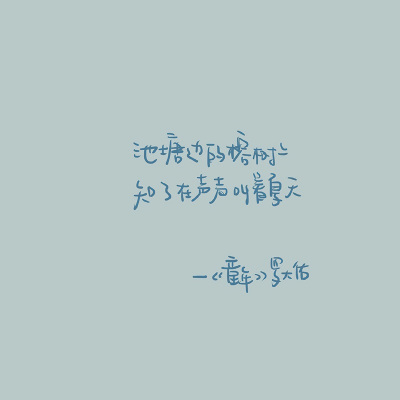 池塘边的榕树上
知了在声声叫着夏天
—《童年》罗大佑